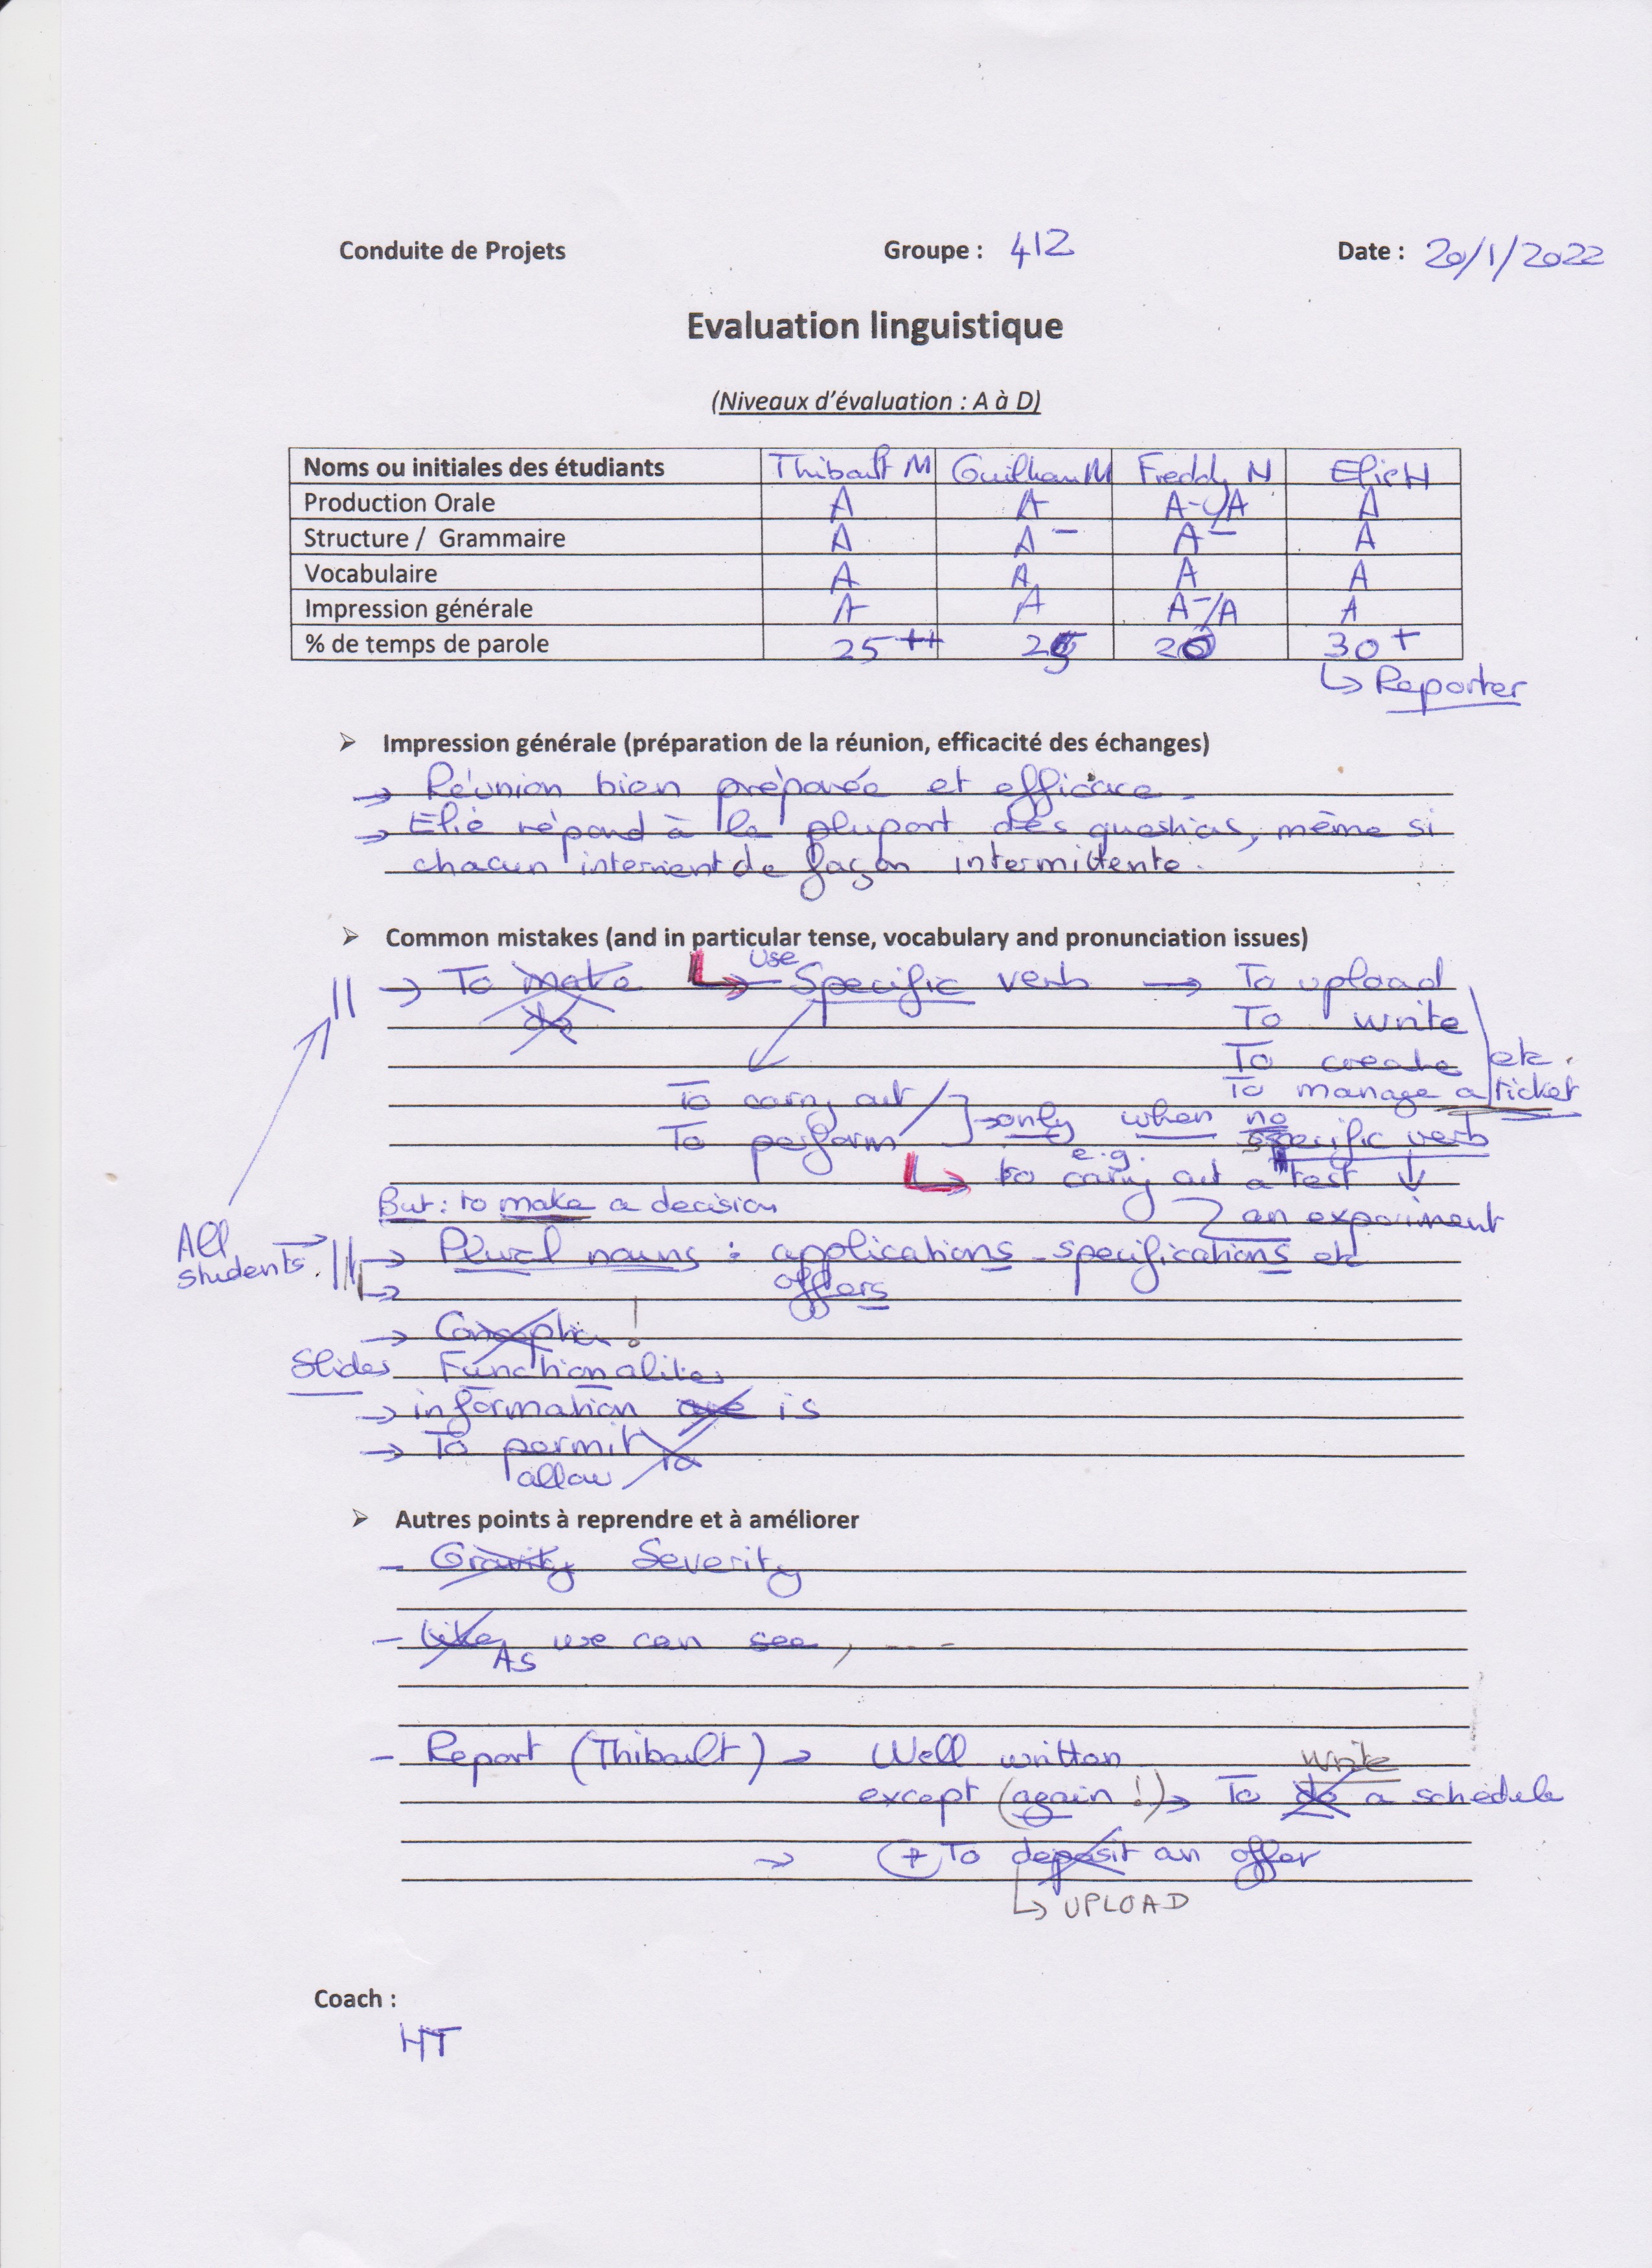 Conduite de Projets Groupe : 412 Date : 20/1/2022
Evaluation linguistique
(Niveaux d'évaluation : A à D)
Noms ou initiales des étudiants Thibault M Guilhem M Freddy N Elie H
Production Orale A A A-/A A
Structure / Grammaire A A- A- A
Vocabulaire A A A A
Impression générale A A A-/A A
% de temps de parole 25 ++ 25 20 30 +
↳ Reporter
➢ Impression générale (préparation de la réunion, efficacité des échanges)
→ Réunion bien préparée et efficace.
→ Elie répond à la plupart des questions, même si
chacun intervient de façon intermittente.
➢ Common mistakes (and in particular tense, vocabulary and pronunciation issues)
→ To make ↳ use Specific verb → To upload
do To write
To create etc.
To carry out To manage a ticket
To perform → only when no specific verb
e.g. to carry out a test ↓
But : to make a decision an experiment
All students → Plural nouns : applications - specifications etc
→ offers
→ Conception !
Slides Functionalities
→ information are is
→ To permit to
allow
➢ Autres points à reprendre et à améliorer
- Gravity Severity
- Like we can see, ----
As
- Report (Thibault) → Well written write
except (again !) → To do a schedule
→ + To deposit an offer
↳ UPLOAD
Coach :
HT